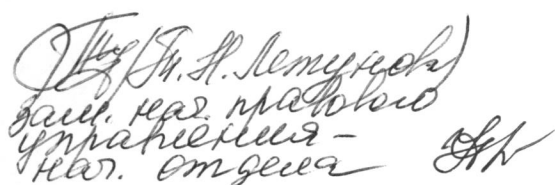 (Т. Н. Летунова)
зам. нач. правового
управления -
нач. отдела